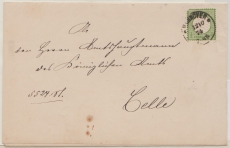 An
den Herrn Amtshauptmann
des Königlichen Amts
5529/81.
Celle